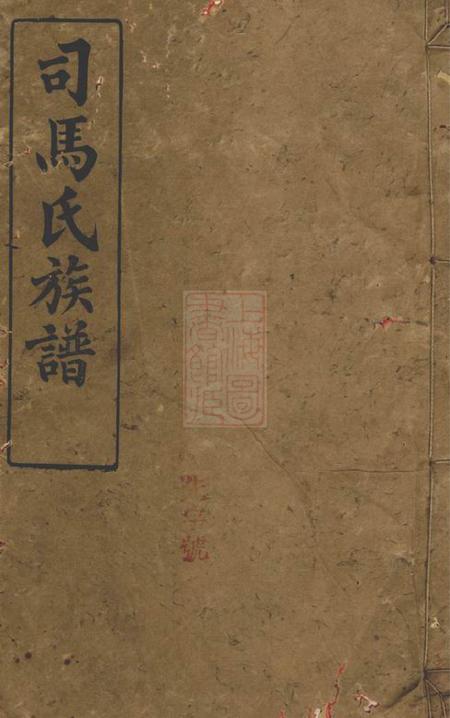 司馬氏族譜
上海圖
書館藏
號